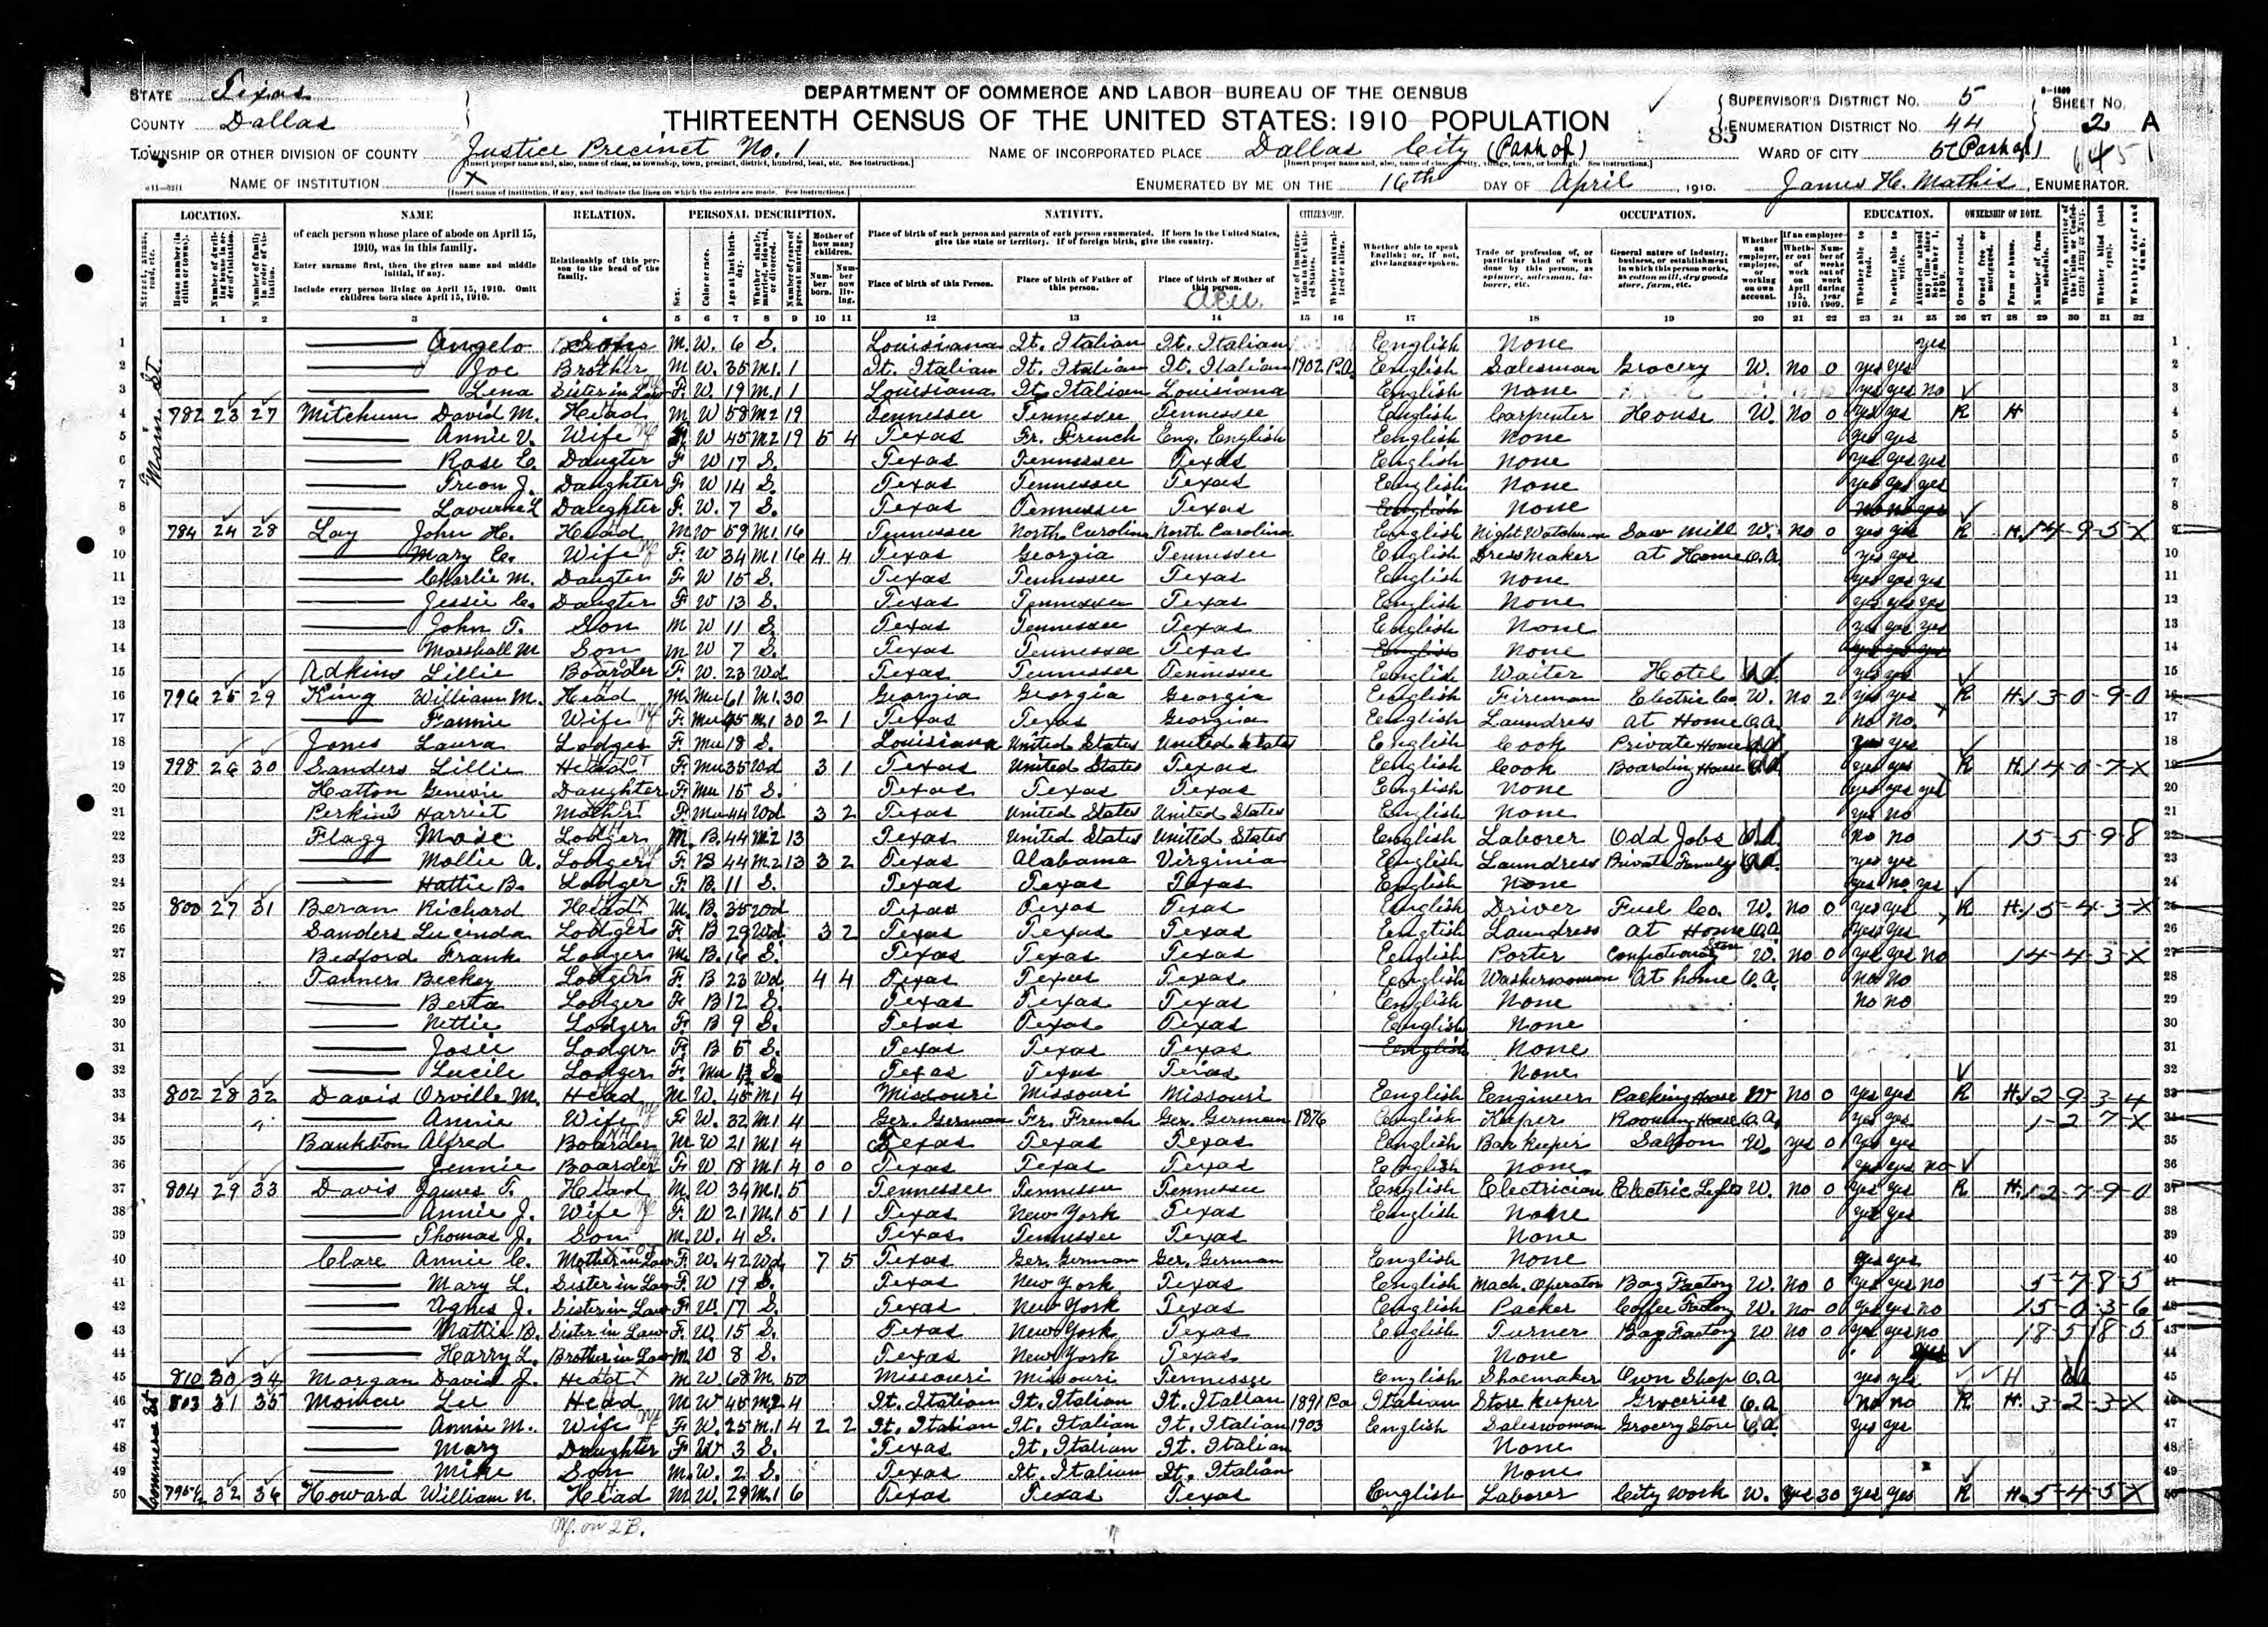 STATE Texas
COUNTY Dallas
DEPARTMENT OF COMMERCE AND LABOR-BUREAU OF THE CENSUS
THIRTEENTH CENSUS OF THE UNITED STATES: 1910 POPULATION
SUPERVISOR'S DISTRICT NO. 5
ENUMERATION DISTRICT NO. 44
SHEET NO. 2 A
TOWNSHIP OR OTHER DIVISION OF COUNTY Justice Precinct No. 1
NAME OF INCORPORATED PLACE Dallas City (Part of)
WARD OF CITY (Part of)
NAME OF INSTITUTION X
ENUMERATED BY ME ON THE 16th DAY OF April, 1910.
James H. Mathis, ENUMERATOR.
LOCATION. NAME RELATION. PERSONAL DESCRIPTION. NATIVITY. CITIZENSHIP. OCCUPATION. EDUCATION. OWNERSHIP OF HOME.
of each person whose place of abode on April 15, 1910, was in this family.
Enter surname first, then the given name and middle initial, if any.
Include every person living on April 15, 1910. Omit children born since April 15, 1910.
Relationship of this person to the head of the family.
Place of birth of each person and parents of each person enumerated. If born in the United States, give the state or territory. If of foreign birth, give the country.
Place of birth of this Person. Place of birth of Father of this person. Place of birth of Mother of this person.
Whether able to speak English; or, if not, give language spoken.
Main St.
1 Angelo M. W. 6 S. Louisiana It. Italian It. Italian English None yes
2 Joe Brother M W. 35 M.1 1 It. Italian It. Italian It. Italian 1902 Pa. English Salesman Grocery W. No 0 yes yes
3 Lena Sister in Law F. W. 19 M.1 1 Louisiana It. Italian Louisiana English None yes yes no
4 782 23 27 Mitchum David M. Head M W 58 M2 19 Tennessee Tennessee Tennessee English Carpenter House W. No 0 yes yes R H
5 Annie V. Wife F W 45 M2 19 5 4 Texas Fr. French Eng. English English None yes yes
6 Rose E. Daugter F W 17 S. Texas Tennessee Texas English None yes yes yes
7 J. Daughter F W 14 S. Texas Tennessee Texas English None yes yes yes
8 Daughter F. W. 7 S. Texas Tennessee Texas English None no no yes
9 784 24 28 Lay John H. Head M W 59 M.1 16 Tennessee North Carolina North Carolina English Night Watchman Saw Mill W. No 0 yes yes R H. 14-9-5-X
10 Mary E. Wife F. W 34 M.1 16 4 4 Texas Georgia Tennessee English Dress Maker at Home O.A. yes yes
11 Charlie M. Daugter F W 15 S. Texas Tennessee Texas English None yes yes yes
12 Jessie C. Daugter F W 13 S. Texas Tennessee Texas English None yes yes yes
13 John T. Son M W 11 S. Texas Tennessee Texas English None yes yes yes
14 Marshall M Son M W 7 S. Texas Tennessee Texas English None yes yes yes
15 Adkins Lillie Boarder F. W. 23 Wd Texas Tennessee Tennessee English Waiter Hotel yes yes
16 796 25 29 King William M. Head M. Mu 61 M.1 30 Georgia Georgia Georgia English Fireman Electric Co W. No 2 yes yes R H. 13-0-9-0
17 Fannie Wife F. Mu 45 M.1 30 2 1 Texas Texas Georgia English Laundress At Home O.A. No No
18 Jones Laura Lodger F. Mu 18 S. Louisiana United States United States English Cook Private Home yes yes
19 798 26 30 Sanders Lillie Head F. Mu 35 Wd 3 1 Texas United States Texas English Cook Boarding House O.A. yes yes R H. 14-0-7-X
20 Hatton Daughter F. Mu 15 S. Texas Texas Texas English None yes yes yes
21 Perkins Harriet Mother F. Mu 44 Wd 3 2 Texas United States United States English None yes no
22 Flagg Mose Lodger M. B. 44 M2 13 Texas United States United States English Laborer Odd Jobs no no 15-5-9-8
23 Mollie A. Lodger F. B 44 M2 13 3 2 Texas Alabama Virginia English Laundress Private Family yes yes
24 Hattie B. Lodger F. B. 11 S. Texas Texas Texas English None yes no yes
25 800 27 31 Beran Richard Head M. B. 35 Wd Texas Texas Texas English Driver Fuel Co. W. No 0 yes yes R H. 15-4-3-X
26 Sanders Lucinda Lodger F. B 29 Wd 3 2 Texas Texas Texas English Laundress At Home O.A. yes yes
27 Bedford Frank Lodger M. B. 16 S. Texas Texas Texas English Porter Confectionary Store W. No 0 yes yes no 14-4-3-X
28 Tanner Beckey Lodger F. B 23 Wd 4 4 Texas Texas Texas English Washerwoman At home O.A. No No
29 Berta Lodger F B 12 S. Texas Texas Texas English None No No
30 Nettie Lodger F. B 9 S. Texas Texas Texas English None
31 Josie Lodger F. B 5 S. Texas Texas Texas English None
32 Lucile Lodger F. Mu S. Texas Texas Texas None
33 802 28 32 Davis Orville M. Head M. W. 45 M.1 4 Missouri Missouri Missouri English Engineer Packing House W No 0 yes yes R H. 12-9-3-4
34 Annie Wife F. W. 32 M.1 4 Ger. German Fr. French Ger. German 1876 English Keeper Rooming House O.A. yes yes 1-2-7-X
35 Bankston Alfred Boarder M W 21 M1 4 Texas Texas Texas English Bar keeper Saloon W. yes 0 yes yes
36 Jennie Boarder F W. 18 M.1 4 0 0 Texas Texas Texas English None yes yes no
37 804 29 33 Davis James T. Head M. W 34 M.1 5 Tennessee Tennessee Tennessee English Electrician W. No 0 yes yes R H. 12-7-9-0
38 Annie J. Wife F. W 21 M.1 5 1 1 Texas New York Texas English None yes yes
39 Thomas J. Son M. W. 4 S. Texas Tennessee Texas None
40 Clare Annie C. Mother in Law F. W. 42 Wd. 7 5 Texas Ger. German Ger. German English None yes yes
41 Mary L. Sister in Law F. W 19 S. Texas New York Texas English Mach. Operator Bag Factory W. No 0 yes yes no 5-7-8-5
42 Agnes J. Sister in Law F. W. 17 S. Texas New York Texas English Packer Coffee Factory W. No 0 yes yes no 15-0-3-6
43 Mattie B. Sister in Law F. W. 15 S. Texas New York Texas English Turner Bag Factory W No 0 yes yes no 18-5-8-5
44 Harry L. Brother in Law M. W 8 S. Texas New York Texas None yes
45 810 30 34 Morgan David J. Head M W. 68 M. 50 Missouri Missouri Tennessee English Shoemaker Own Shop O.A. yes yes H
Commerce St
46 803 31 35 Lee Head M W 45 M2 4 It. Italian It. Italian It. Italian 1891 Pa Italian Store keeper Groceries O.A. no no R H. 3-2-3-X
47 Annie M. Wife F. W. 25 M.1 4 2 2 It. Italian It. Italian It. Italian 1903 English Saleswoman Grocery Store O.A. yes yes
48 Mary Daughter F W 3 S. Texas It. Italian It. Italian None
49 Mike Son M. W. 2 S. Texas It. Italian It. Italian None
50 795½ 32 36 Howard William N. Head M. W. 29 M.1 6 Texas Texas Texas English Laborer City Work W. yes 30 yes yes R H. 5-4-5-X
Wf. on 2 B.